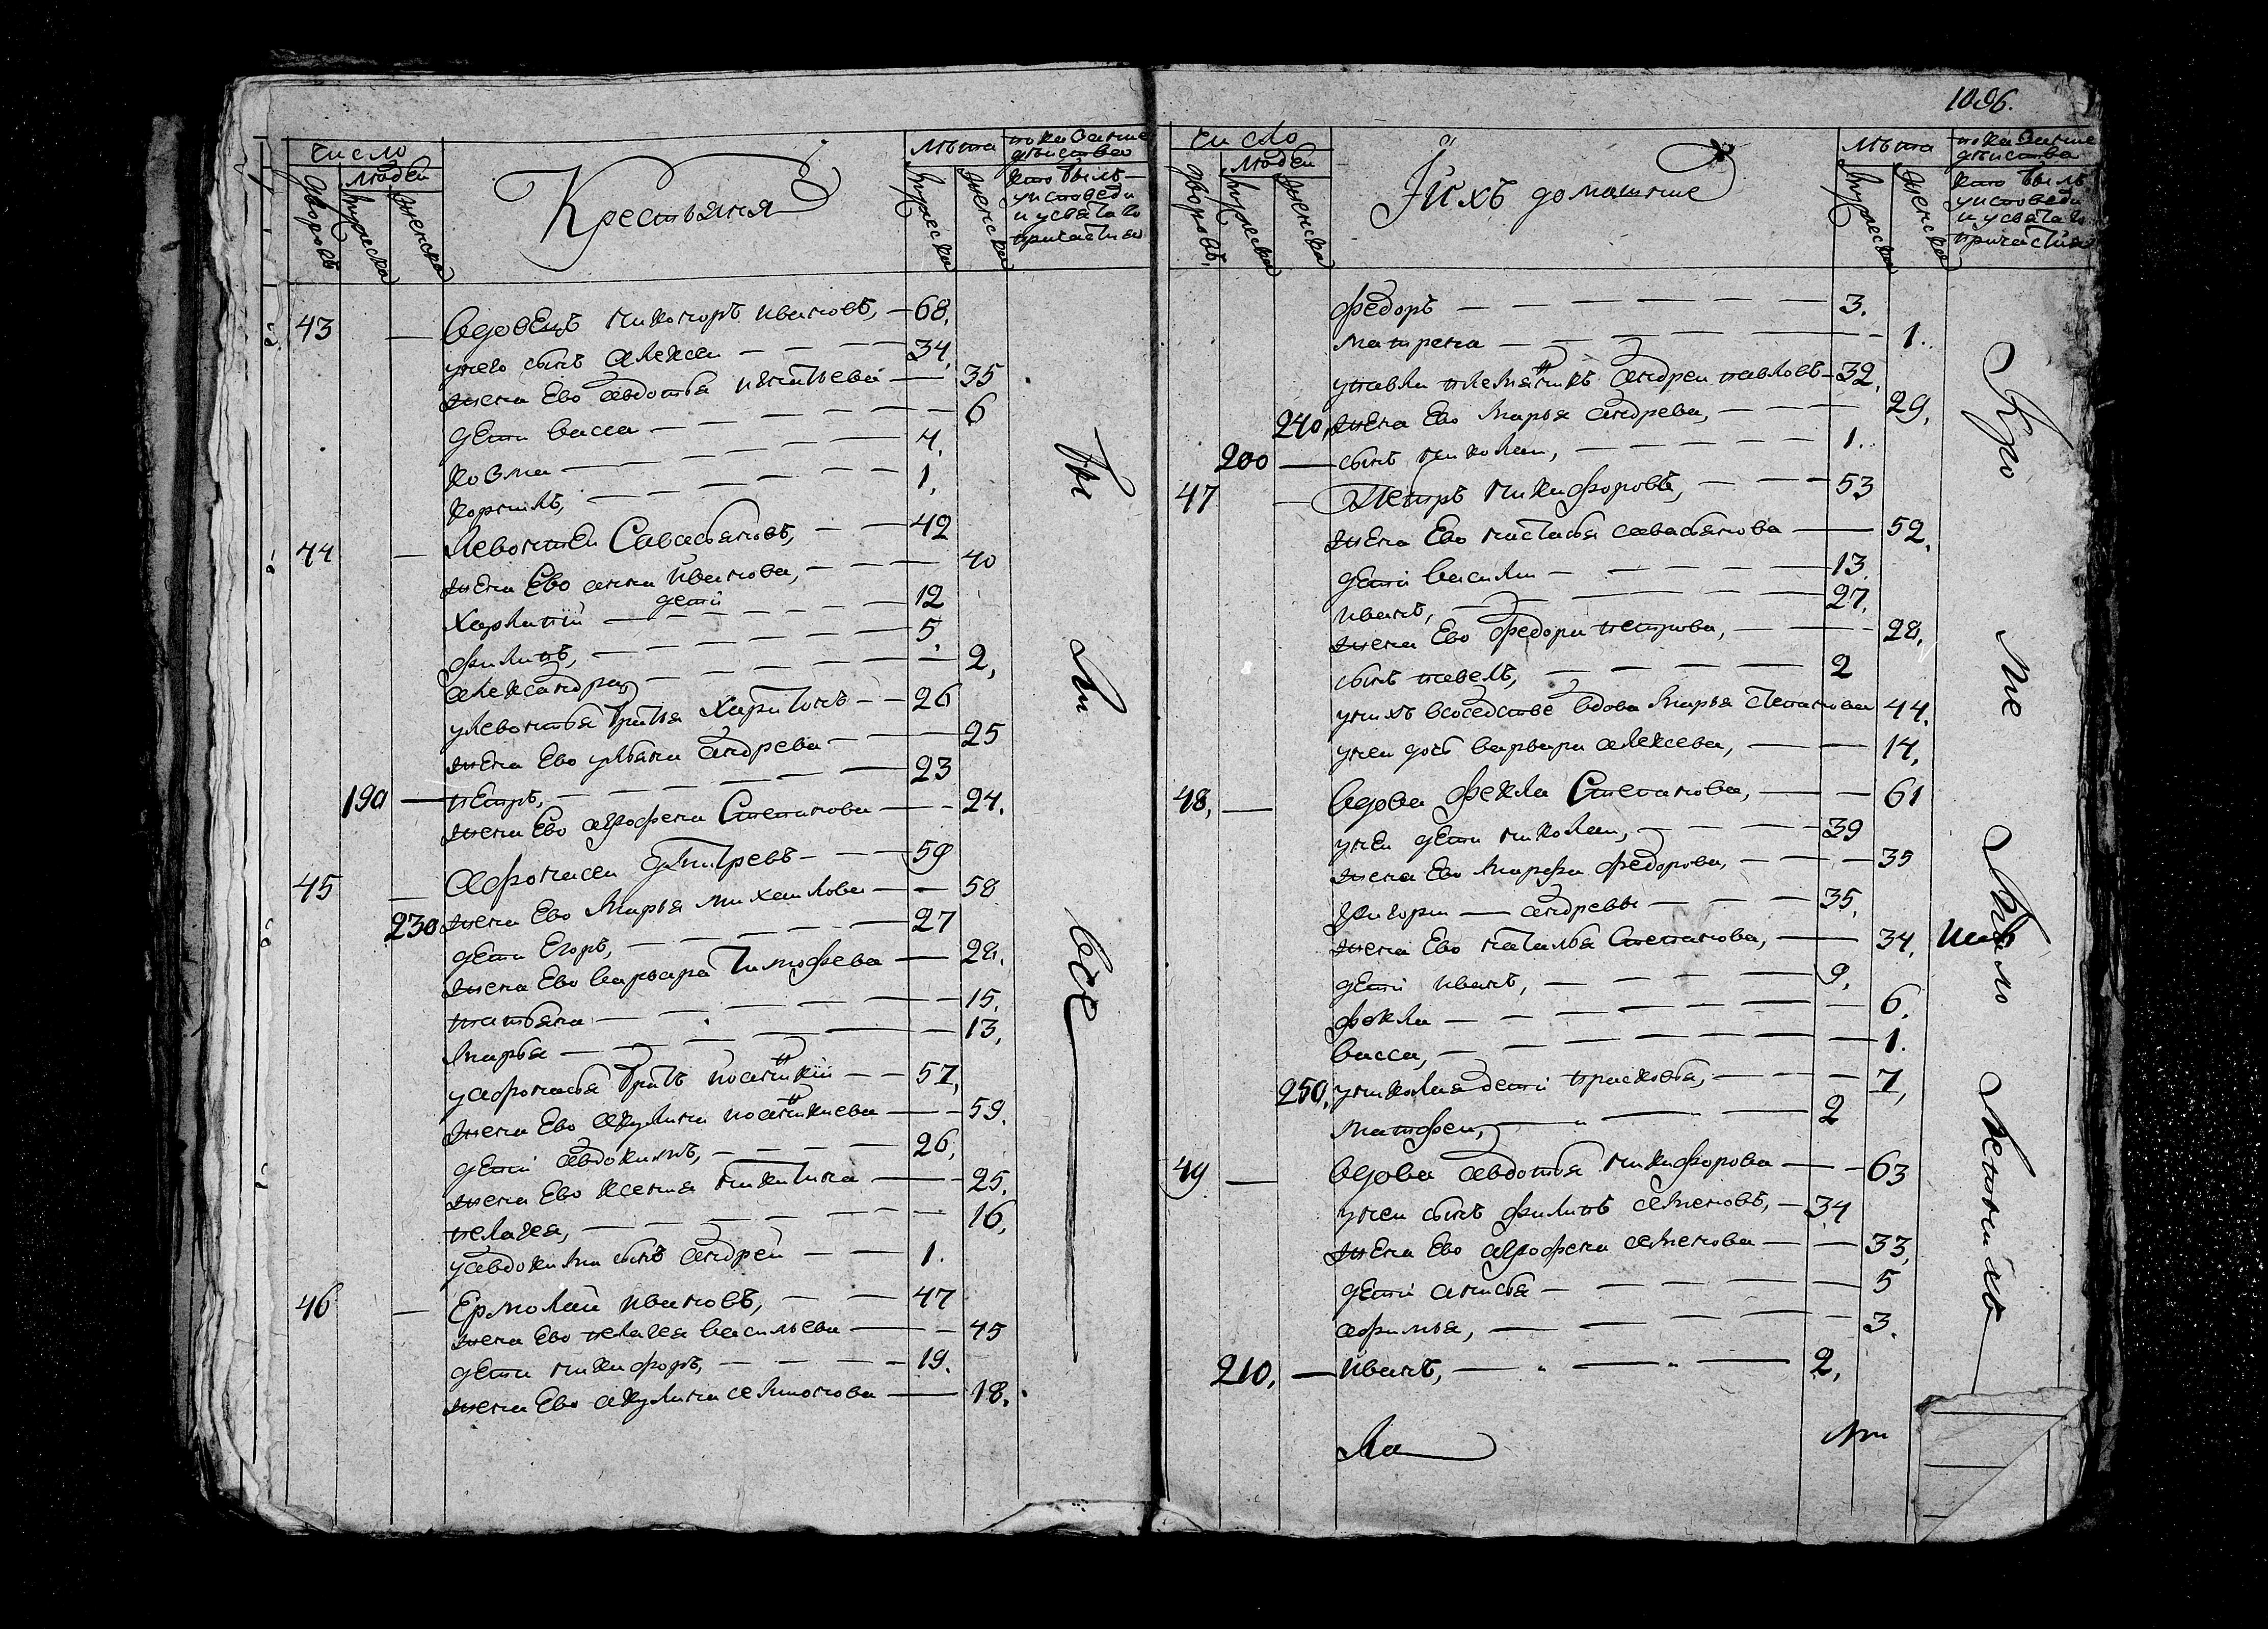 Число
людей
дворовъ
мужеска
женска
Крестьяня
лѣта
мужеска
женска
показание
действо
кто былъ
у исповеди
и у святаго
причастия
43 — вдовецъ никоноръ ивановъ, — 68.
у него сынъ алексеи — 34
жена Ево авдотья игнатьева — 35
дети васса — 6
козма — 4.
корнилъ, — 1.
44 — Левонтеи Савастьяновъ, — 42
жена Ево анна иванова, — 40
дети
Харлапии — 12
филипъ, — 5.
александра — 2,
у левонтья братья Харитонъ — 26
жена Ево ульяна андрева — 25
190 — петръ, — 23
жена Ево аграфена Степанова — 24.
45 — Афонасеи дмитревъ — 59
230 жена Ево марья михаилова — 58
дети Егоръ, — 27
жена Ево варвара Тимофева — 28.
татьяна — 15.
марья — 13,
у афонасья братъ иоаникии — 57,
жена Ево акулина иоаникиева — 59.
дети авдокимъ, — 26,
жена Ево ксения никитина — 25.
пелагея, — 16,
у авдокима сынъ андреи — 1.
46 — Ермолаи ивановъ, — 47
жена Ево пелагея васильева — 45
дети никифоръ, — 19.
жена Ево акулина семионова — 18.
бы
ли
все
1096.
число
людей
дворовъ,
мужеска
женска
И ихъ домашние
лѣта
мужеска
женска
показание
действа
кто былъ
у исповеди
и у святаго
причастия
федоръ — 3.
матрена — 1.
у павла племянникъ андреи павловъ — 32.
240, жена Ево марья андрева, — 29.
200 — сынъ николаи, — 1.
47 — Петръ никифоровъ, — 53
жена Ево настасья савастьянова — 52.
дети василии — 13.
иванъ, — 27.
жена Ево федора петрова, — 28,
сынъ павелъ, — 2
у нихъ в соседстве вдова марья степанова 44.
у неи дочь варвара алексева, — 14,
48, — вдова фекла Степанова, — 61
у неи дети николаи, — 39
жена Ево марфа федорова, — 35
григори — андревы — 35,
жена Ево наталья Степанова, — 34,
дети иванъ, — 9,
фекла — 6.
васса, — 1.
250, у николая дети прасковья, — 7,
матфеи, — 2
49 — вдова авдотья никифорова — 63
у неи сынъ филипъ семеновъ, — 34
жена Ево аграфена семенова — 33,
дети анисья — 5
афимья, — 3.
210, — иванъ, — 2,
кро
ме
мало
летнихъ